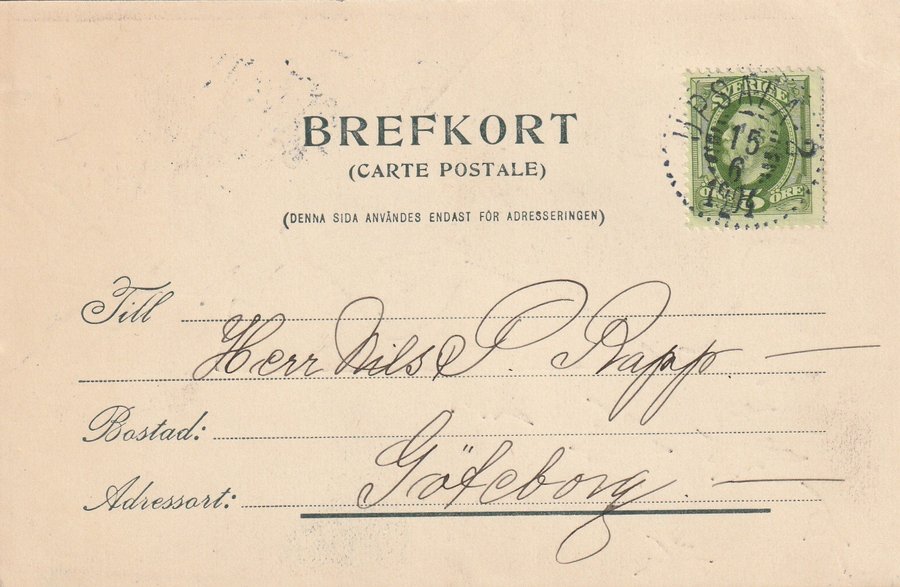 BREFKORT
(CARTE POSTALE)
(DENNA SIDA ANVÄNDES ENDAST FÖR ADRESSERINGEN)
SVERIGE
UPSALA 2
15
6
ÖRE
Till
Herr Nils P. Rapp
Bostad:
Göteborg.
Adressort: